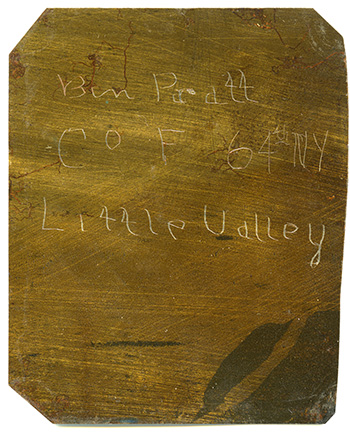 Ben Pratt
Co F 64th NY
Little Valley